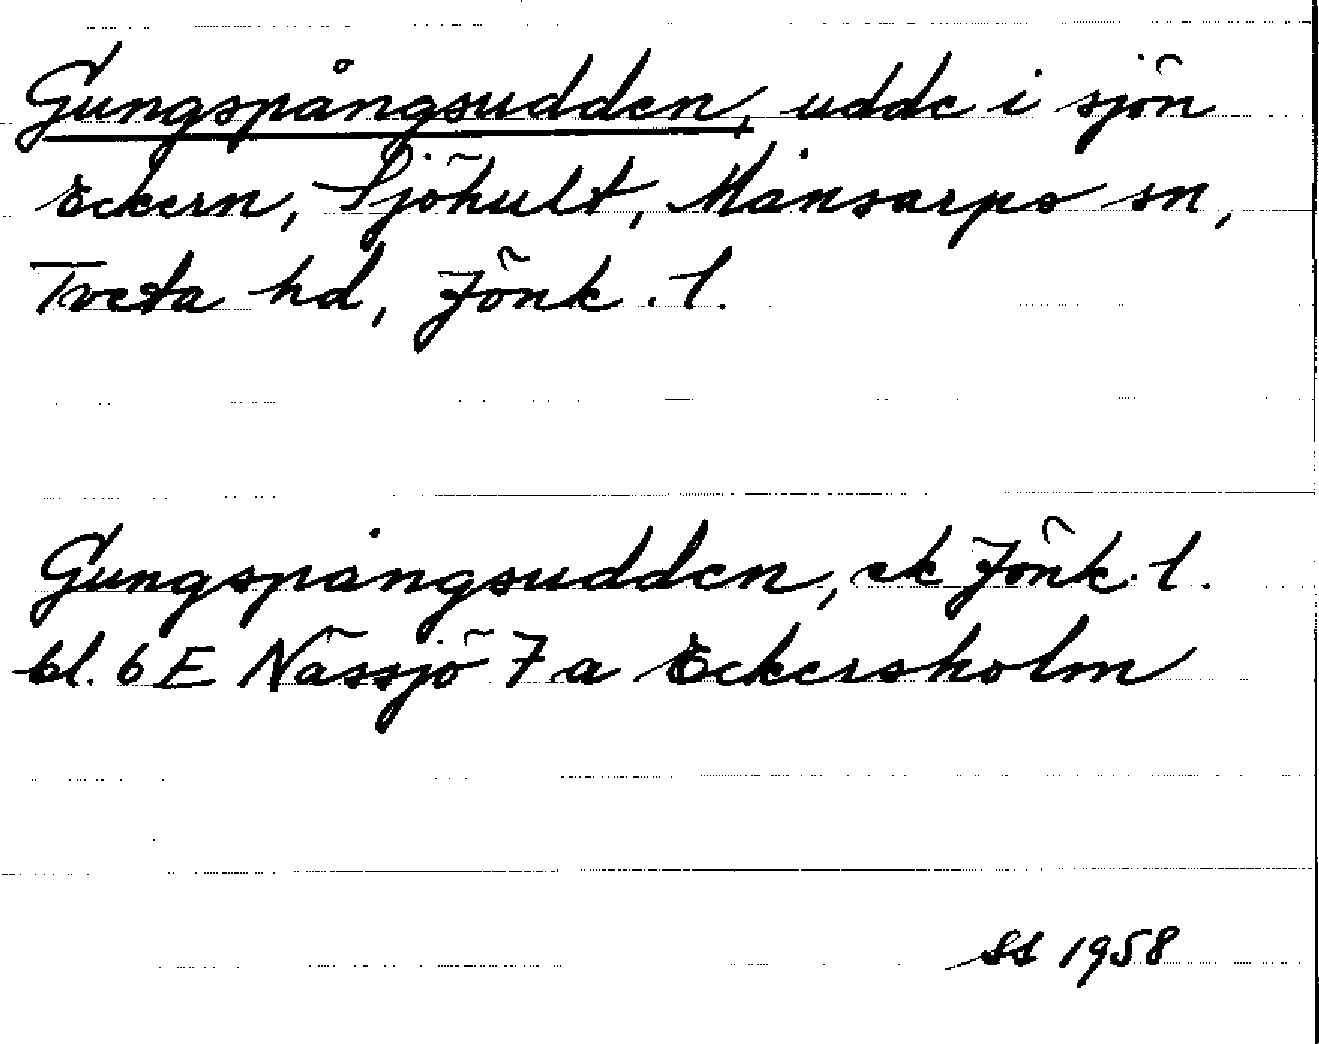 Gungspångsudden, udde i sjön
Eckern, Sjöhult, Månsarps sn,
Tveta hd, Jönk. l.
Gungspångsudden, ek Jönk. l.
bl. 6 E Nässjö 7 a Eckersholm
SS 1958